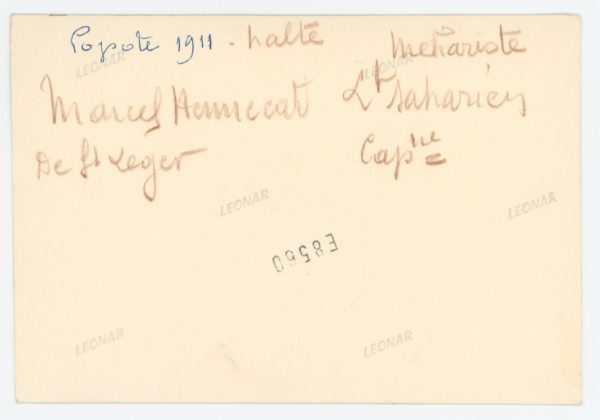 Popote 1911 - halte Mehariste
Marcel Hennecart Lt Saharien
De St Leger Capne
LEONAR
LEONAR
LEONAR
LEONAR
E8560
LEONAR
LEONAR